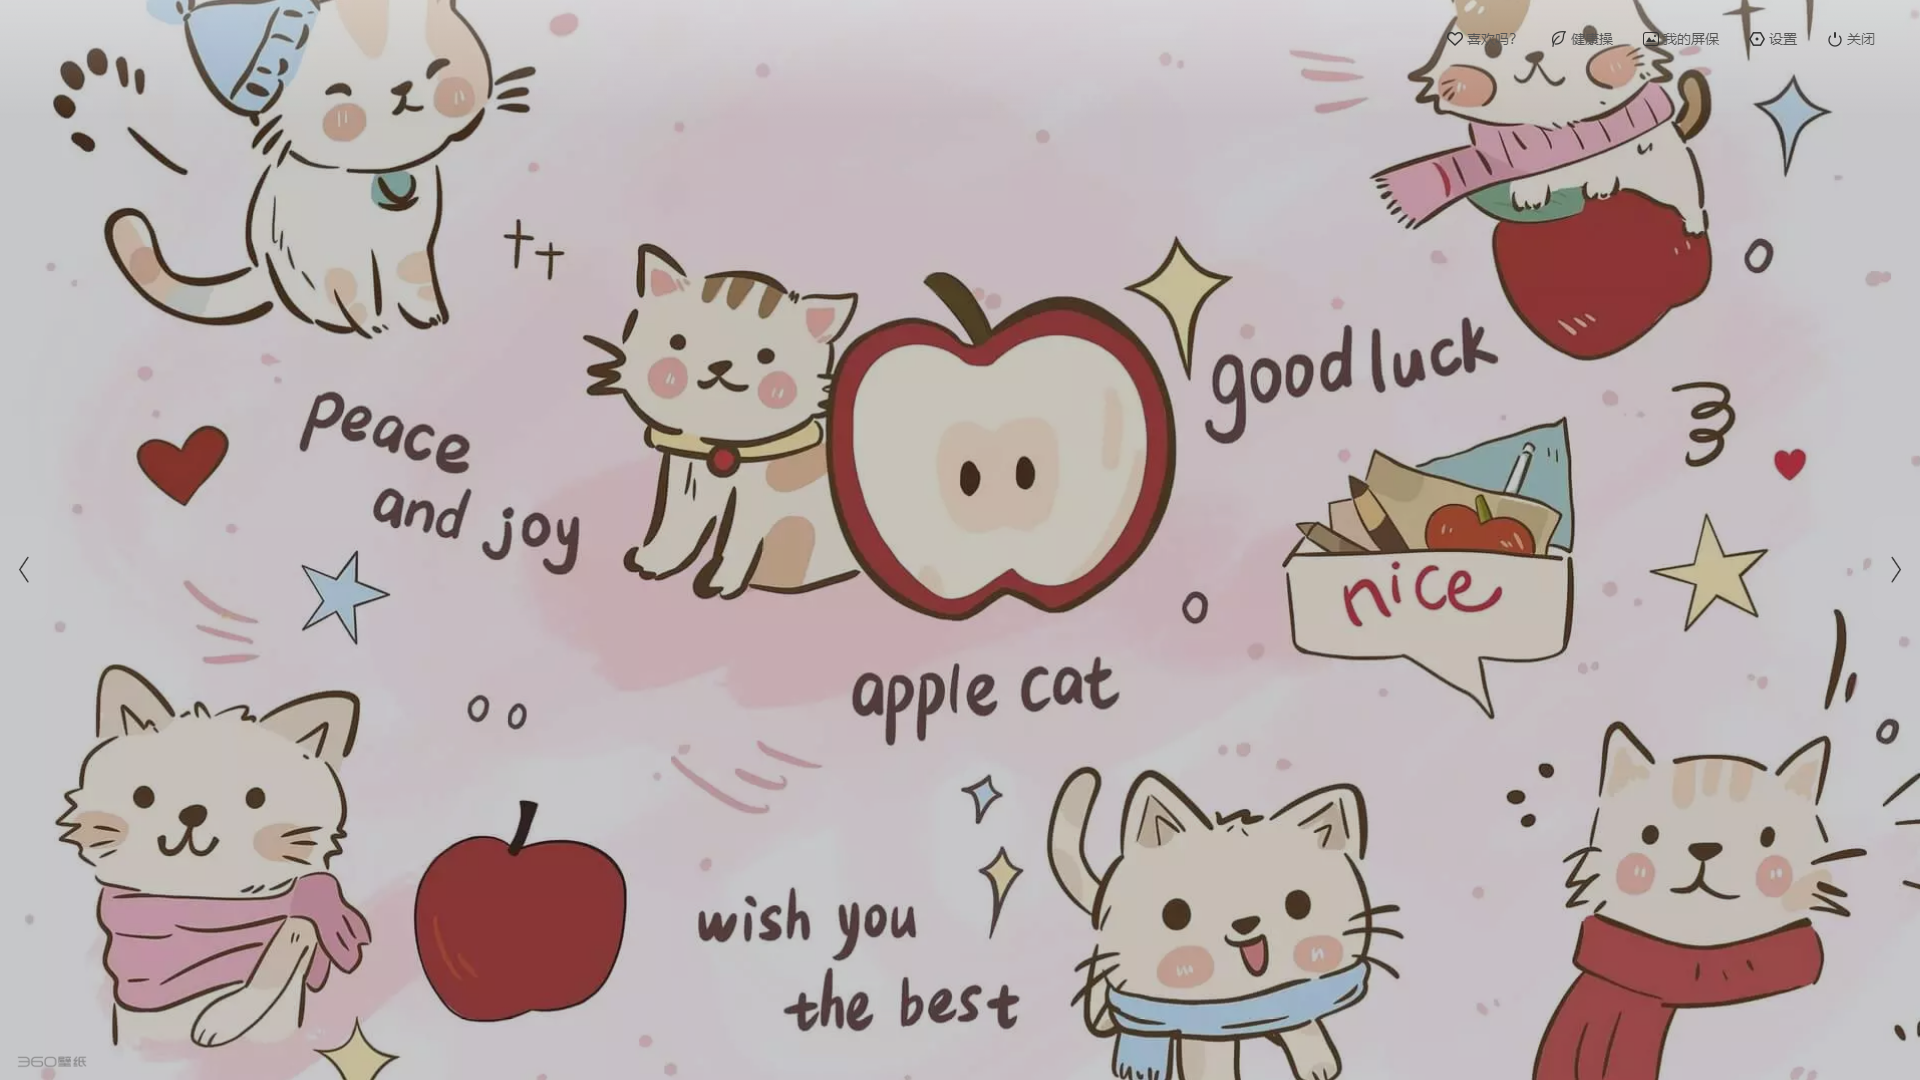 喜欢吗?
健康操
我的屏保
设置
关闭
good luck
peace
and joy
nice
apple cat
wish you
the best
360壁纸